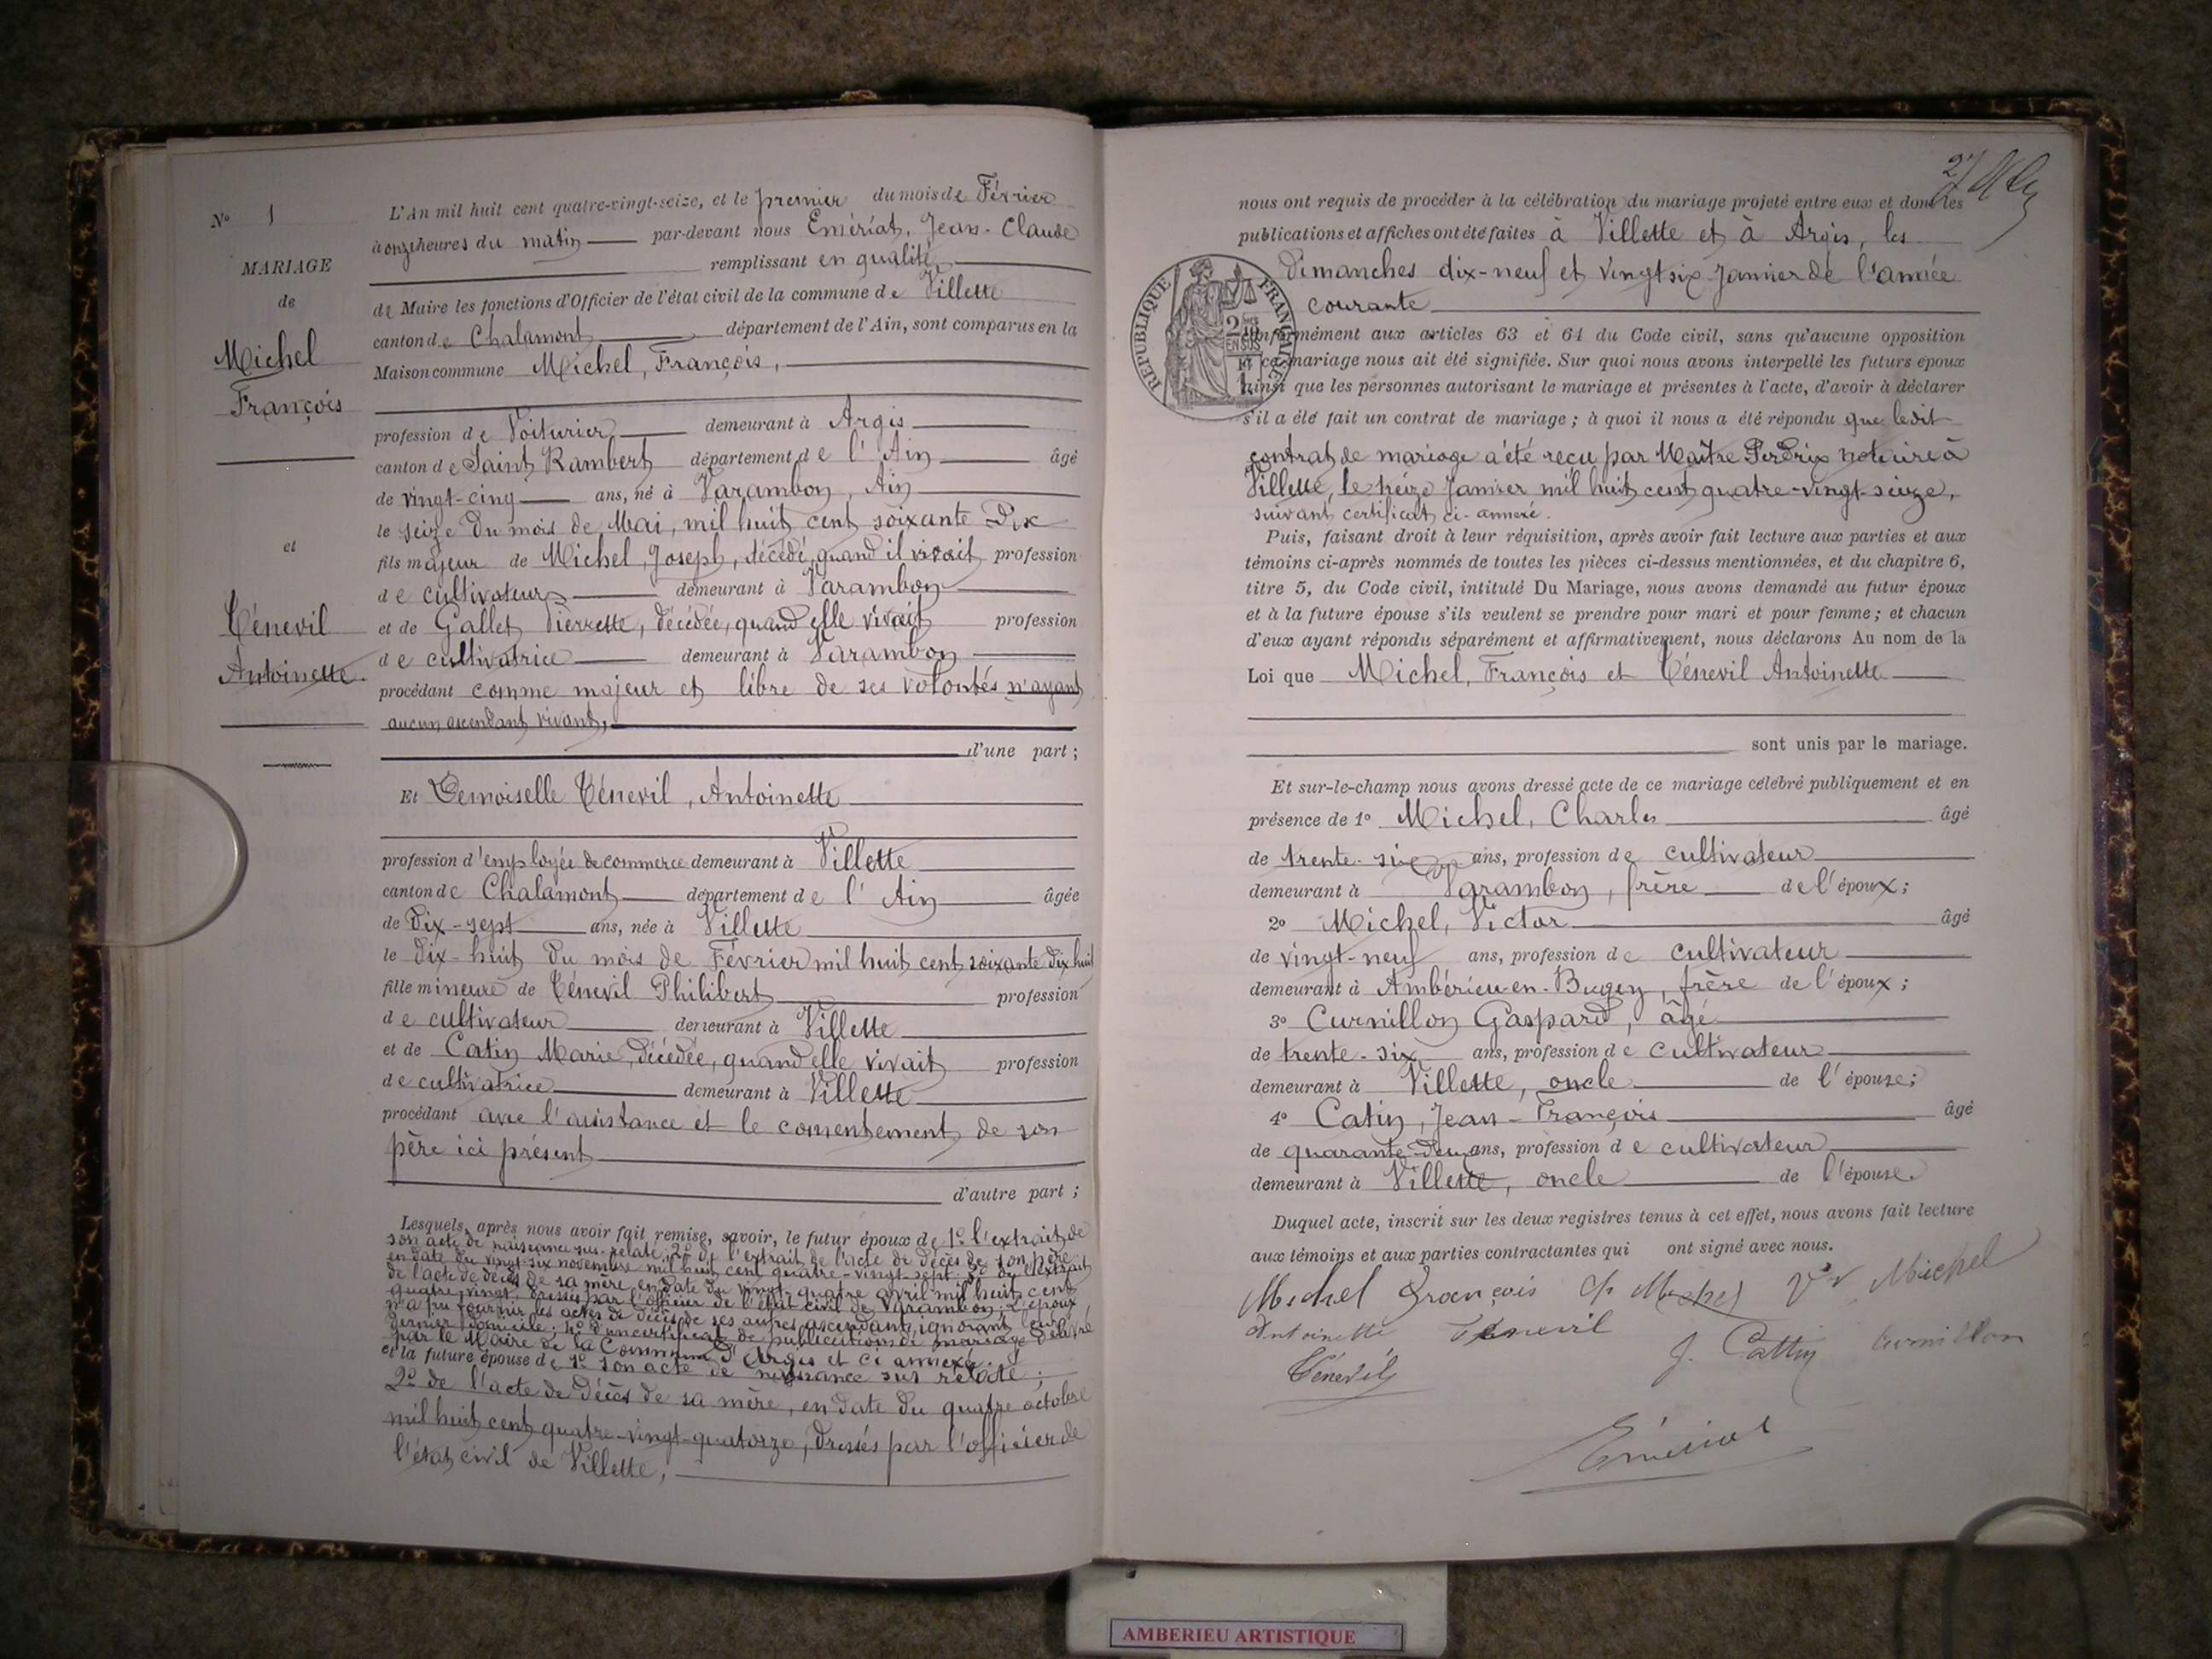 N° 1
MARIAGE
de
Michel
François
et
Ténevil
Antoinette.
L'An mil huit cent quatre-vingt-seize, et le premier du mois de Février
à onze heures du matin par-devant nous Emériat, Jean-Claude
remplissant en qualité
de Maire les fonctions d'Officier de l'état civil de la commune de Villette
canton de Chalamont département de l'Ain, sont comparus en la
Maison commune Michel, François,
profession de Voiturier demeurant à Argis
canton de Saint Rambert département de l'Ain âgé
de vingt-cinq ans, né à Varambon, Ain
le seize du mois de Mai, mil huit cent soixante Dix
fils majeur de Michel, Joseph, décédé, quand il vivait profession
de cultivateur demeurant à Varambon
et de Gallet Pierrette, décédée, quand elle vivait profession
de cultivatrice demeurant à Varambon
procédant comme majeur et libre de ses volontés n'ayant
aucun ascendant vivant,
d'une part ;
Et Demoiselle Ténevil, Antoinette
profession d'employée de commerce demeurant à Villette
canton de Chalamont département de l'Ain âgée
de Dix-sept ans, née à Villette
le dix-huit du mois de Février mil huit cent soixante dix huit
fille mineure de Ténevil Philibert profession
de cultivateur demeurant à Villette
et de Catin Marie, décédée, quand elle vivait profession
de cultivatrice demeurant à Villette
procédant avec l'assistance et le consentement de son
père ici présent
d'autre part ;
Lesquels, après nous avoir fait remise, savoir, le futur époux de 1° l'extrait de
son acte de naissance sus-relaté, 2° de l'extrait de l'acte de décès de son père
en date du vingt-six novembre mil huit cent quatre-vingt-sept 3° de l'extrait
de l'acte de décès de sa mère, en date du vingt-quatre avril mil huit cent
quatre-vingt, dressés par l'officier de l'état civil de Varambon ; L'époux
n'a pu fournir les actes de décès de ses autres ascendants, ignorant leur
dernier domicile ; 4° d'un certificat de publications de mariage délivré
par le Maire de la Commune d'Argis et ci annexé.
et la future épouse de 1° son acte de naissance sus relaté ;
2° de l'acte de décès de sa mère, en date du quatre octobre
mil huit cent quatre-vingt-quatorze, dressés par l'officier de
l'état civil de Villette ;
27
nous ont requis de procéder à la célébration du mariage projeté entre eux et dont les
publications et affiches ont été faites à Villette et à Argis, les
Dimanches dix-neuf et vingt six Janvier de l'année
courante
REPUBLIQUE FRANÇAISE
EN SUS
conformément aux articles 63 et 64 du Code civil, sans qu'aucune opposition
à ce mariage nous ait été signifiée. Sur quoi nous avons interpellé les futurs époux
ainsi que les personnes autorisant le mariage et présentes à l'acte, d'avoir à déclarer
s'il a été fait un contrat de mariage ; à quoi il nous a été répondu que ledit
contrat de mariage a été reçu par Maître Perdrix notaire à
Villette, le treize Janvier mil huit cent quatre-vingt-seize,
suivant certificat ci-annexé.
Puis, faisant droit à leur réquisition, après avoir fait lecture aux parties et aux
témoins ci-après nommés de toutes les pièces ci-dessus mentionnées, et du chapitre 6,
titre 5, du Code civil, intitulé Du Mariage, nous avons demandé au futur époux
et à la future épouse s'ils veulent se prendre pour mari et pour femme ; et chacun
d'eux ayant répondu séparément et affirmativement, nous déclarons Au nom de la
Loi que Michel, François et Ténevil Antoinette
sont unis par le mariage.
Et sur-le-champ nous avons dressé acte de ce mariage célébré publiquement et en
présence de 1° Michel, Charles âgé
de trente-six ans, profession de cultivateur
demeurant à Varambon, frère de l'époux ;
2° Michel, Victor âgé
de vingt-neuf ans, profession de cultivateur
demeurant à Ambérieu-en-Bugey, frère de l'époux ;
3° Curnillon Gaspard, âgé
de trente-six ans, profession de cultivateur
demeurant à Villette, oncle de l'épouse ;
4° Catin, Jean-François âgé
de quarante-deux ans, profession de cultivateur
demeurant à Villette, oncle de l'épouse.
Duquel acte, inscrit sur les deux registres tenus à cet effet, nous avons fait lecture
aux témoins et aux parties contractantes qui ont signé avec nous.
Michel François Ch Michel Vr Michel
Antoinette Ténevil J. Cattin Curnillon
Ténevil
Emériat
AMBERIEU ARTISTIQUE